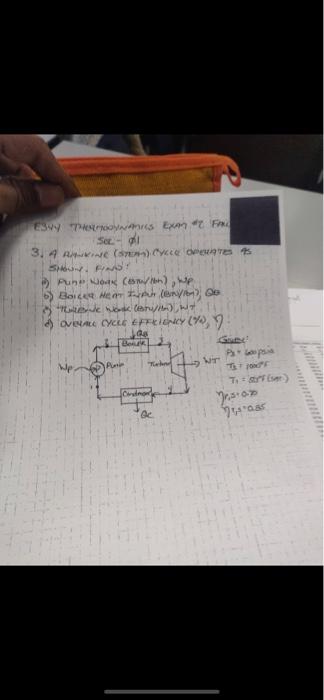 E344 THERMODYNAMICS EXAM #2 FALL
SEC - 01
3. A RANKINE (STEAM) CYCLE OPERATES AS
SHOWN. FIND:
a) PUMP WORK (BTU/lbm), WP
b) BOILER HEAT INPUT (BTU/lbm), QB
c) TURBINE WORK (BTU/lbm), WT
d) OVERALL CYCLE EFFICIENCY (%), η
QB
Boiler
Given:
Wp
Pump
Turbine
WT
P3 = 600 psia
T3 = 1000°F
Condenser
ηP,S = 0.70
QC
ηT,S = 0.85